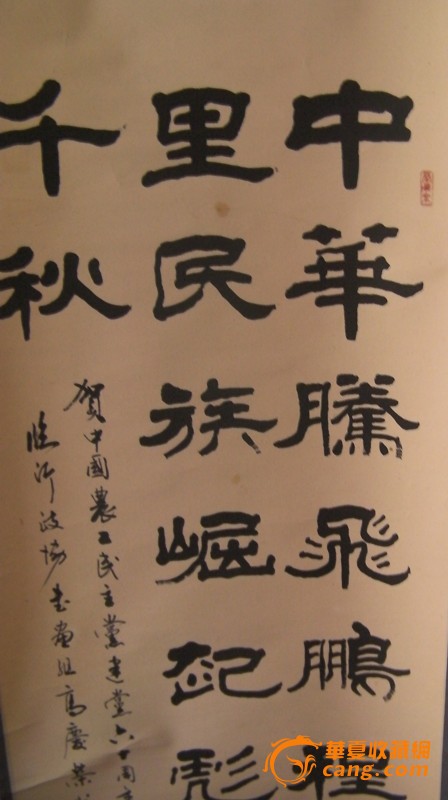 中華騰飛鵬程
里民族崛起彪
千秋
賀中國農工民主黨建黨六十周年
臨沂政協書畫組高慶榮
華夏收藏網
cang.com